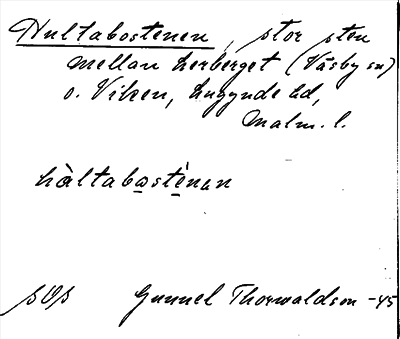 Hultabostenen, stor sten
mellan herberget (Väsby sn)
o. Viken, Luggude hd,
Malm. l.
hùltabosténan
SOS Gunnel Thorwaldson -45